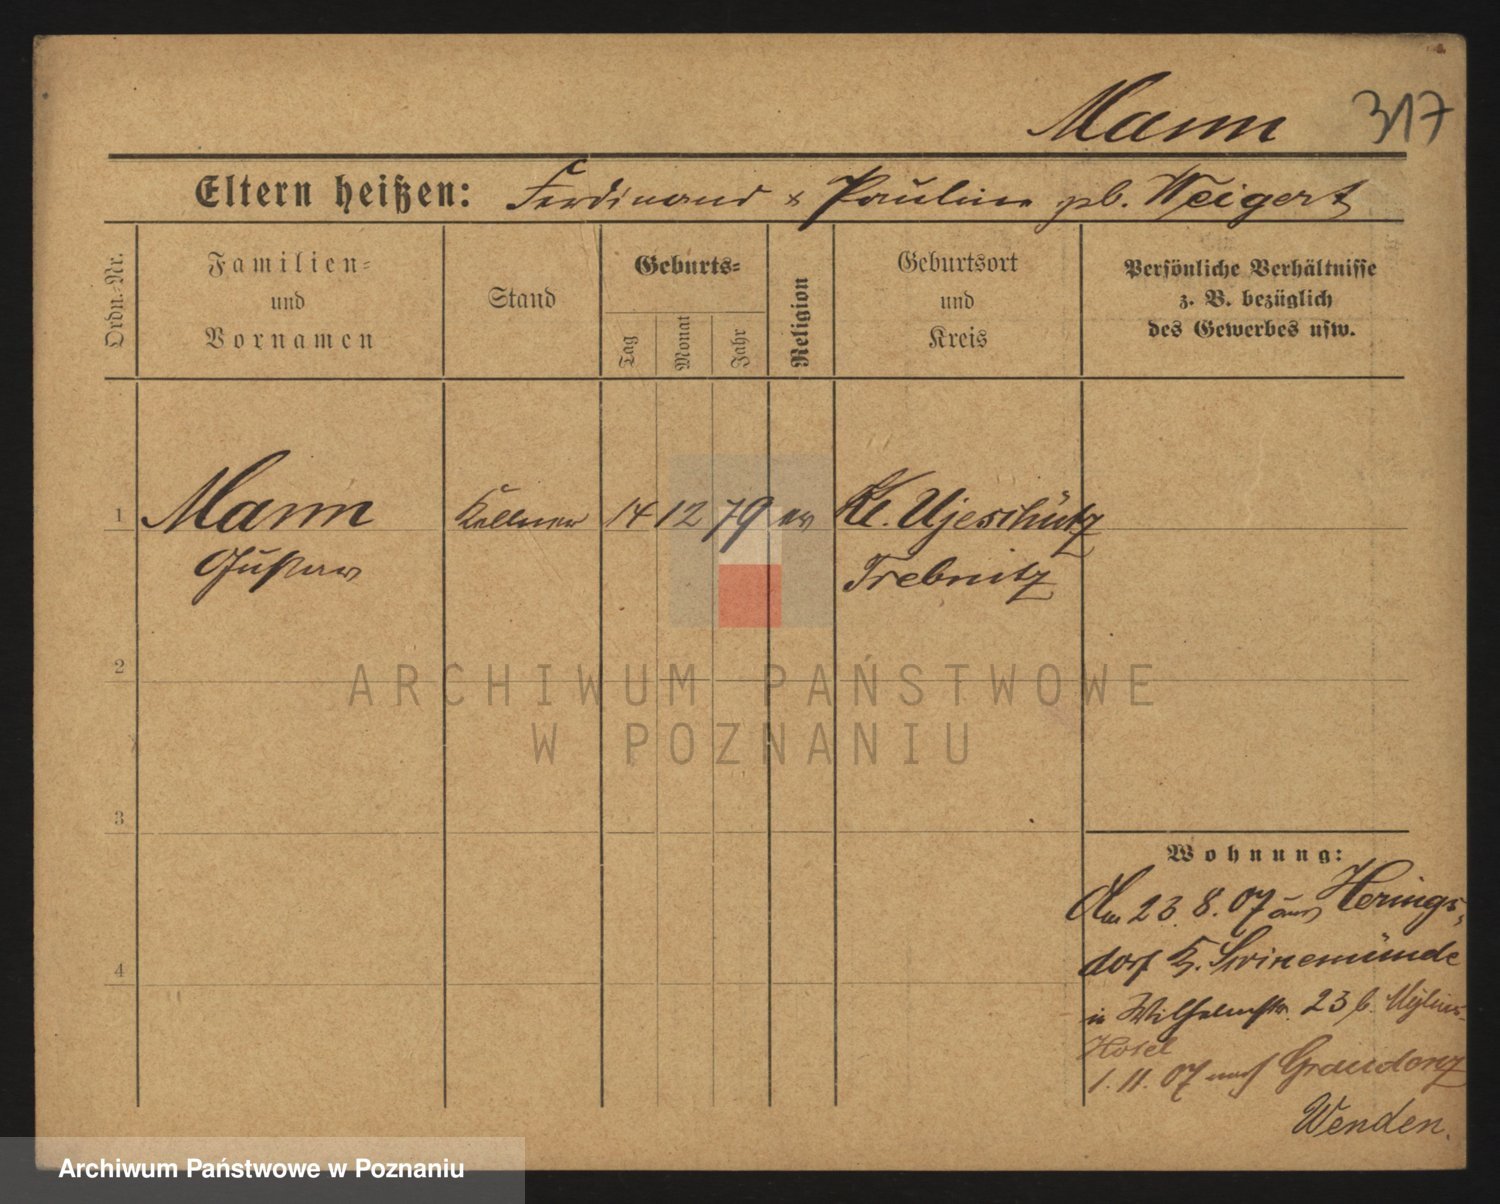 Mann 317
Eltern heißen: Ferdinand & Pauline gb. Weigert
Ordn.-Nr.
Familien-
und
Vornamen
Stand
Geburts-
Tag
Monat
Jahr
Religion
Geburtsort
und
Kreis
Persönliche Verhältnisse
z. B. bezüglich
des Gewerbes usw.
1 Mann Kellner 14 12 79 ev Kl. Ujeschütz
Gustav Trebnitz
2
ARCHIWUM PAŃSTWOWE
W POZNANIU
3
Wohnung:
Am 23. 8. 07 aus Herings-
dorf K. Swinemünde
4
in Wilhelmstr. 23 b. Mylius-
Hotel
1. 11. 07 nach Graudenz
Wenden.
Archiwum Państwowe w Poznaniu